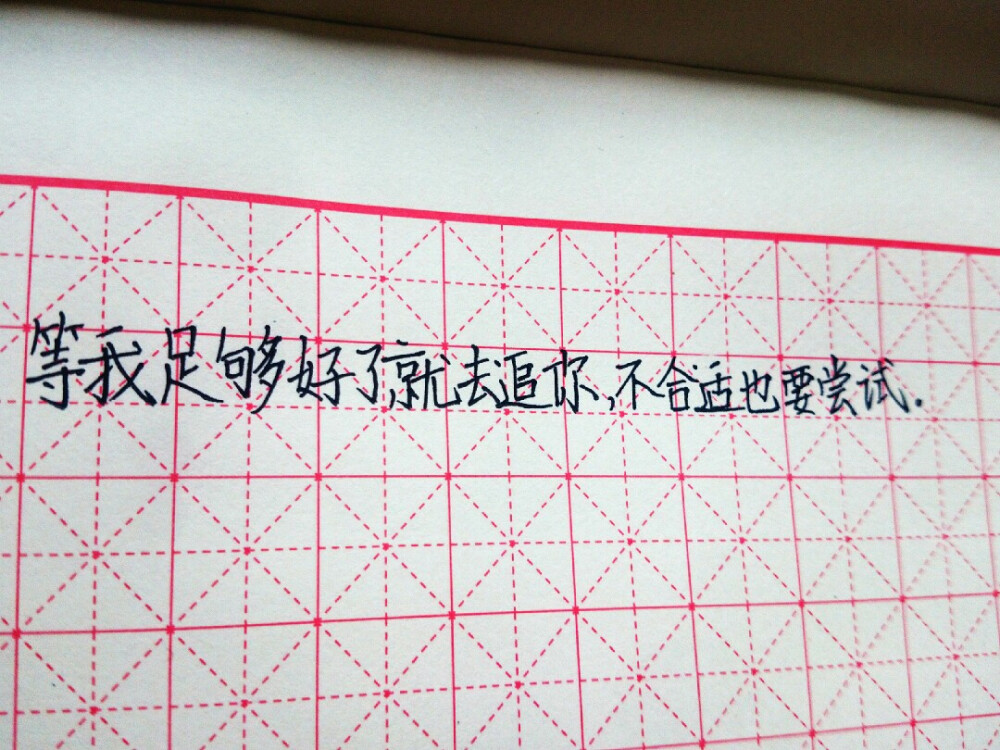 等我足够好了,就去追你,不合适也要尝试.